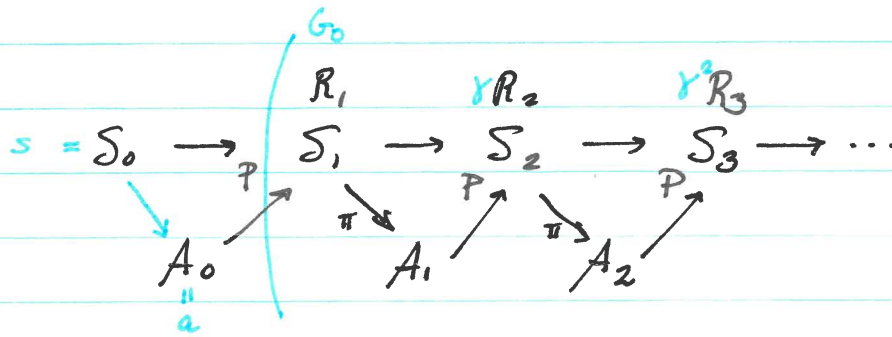 G₀
R₁ γR₂ γ²R₃
s = S₀ → S₁ → S₂ → S₃ → ...
P P P
π π
A₀ A₁ A₂
"
a